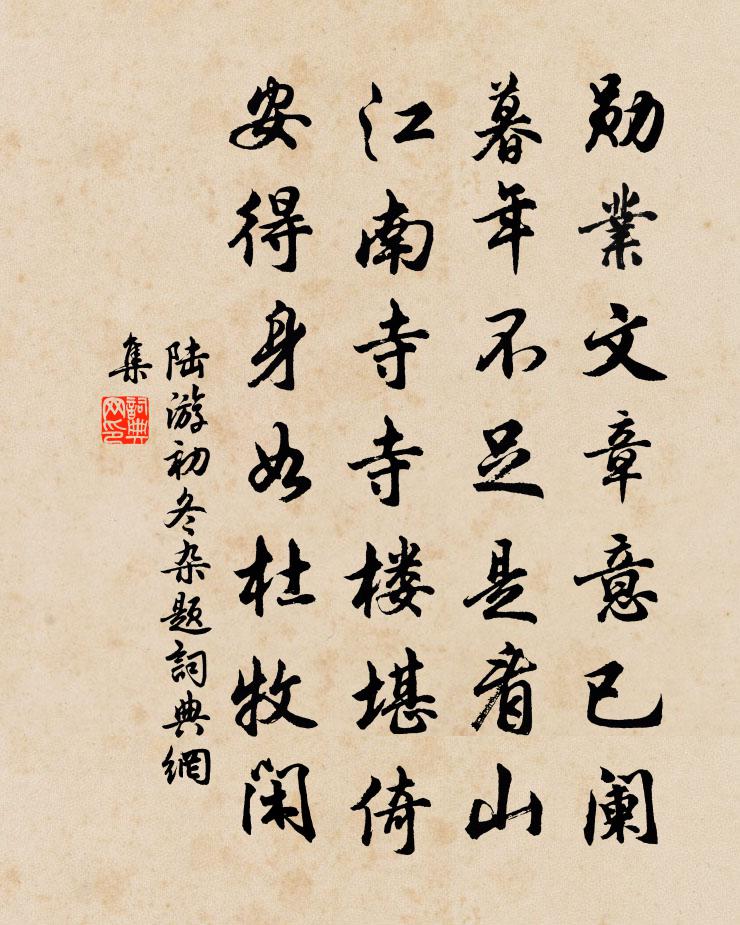 勋業文章意已阑
暮年不足是看山
江南寺寺楼堪倚
安得身如杜牧闲
陆游初冬杂题詞典網
集
詞典
网印